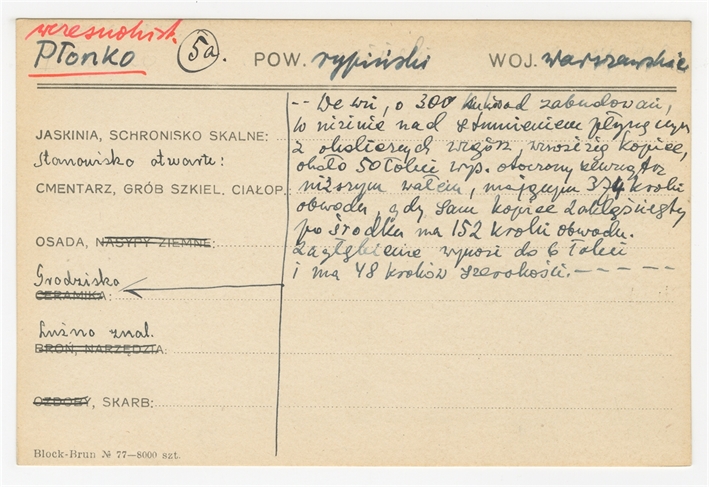 wczesnohist.
Płonko 5a. POW. rypiński WOJ. warszawskie
-- We wsi, o 300 kroków od zabudowań,
w nizinie nad strumieniem płynącym
JASKINIA, SCHRONISKO SKALNE:
z okolicznych wzgórz, wznosi się kopiec,
Stanowisko otwarte:
około 50 łokci wys. otoczony zewnątrz
CMENTARZ, GRÓB SZKIEL. CIAŁOP.:
niższym wałem, mającym 374 kroki
obwodu, gdy sam kopiec zaklęśnięty
po środku ma 152 kroki obwodu.
OSADA, NASYPY ZIEMNE:
Zagłębienie wynosi do 6 łokci
i ma 48 kroków szerokości. - - - - -
Grodzisko
CERAMIKA:
Luźno znal.
BROŃ, NARZĘDZIA:
OZDOBY, SKARB:
Block-Brun № 77—8000 szt.